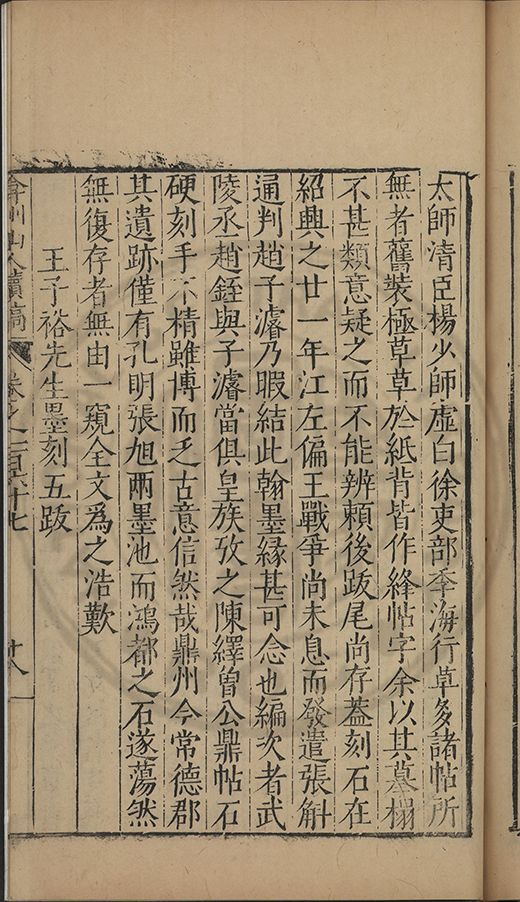 太師清臣楊少師虛白徐吏部季海行草多諸帖所
無者舊裝極草草於紙背皆作絳帖字余以其摹榻
不甚類意疑之而不能辨賴後跋尾尚存蓋刻石在
紹興之廿一年江左偏王戰爭尚未息而發遣張斛
通判趙子濬乃暇結此翰墨緣甚可念也編次者武
陵丞趙銍與子濬當俱皇族攷之陳繹曽公鼎帖石
硬刻手不精雖博而乏古意信然哉鼎州今常德郡
其遺跡僅有孔明張旭兩墨池而鴻都之石遂蕩然
無復存者無由一窺全文爲之浩歎
王子裕先生墨刻五跋
弇州山人續稿 卷之一百六十七 十八